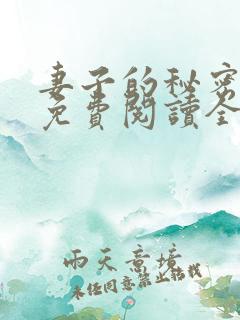 妻子的秘密
免費閱讀全
雨天意境
未经同意禁止转载